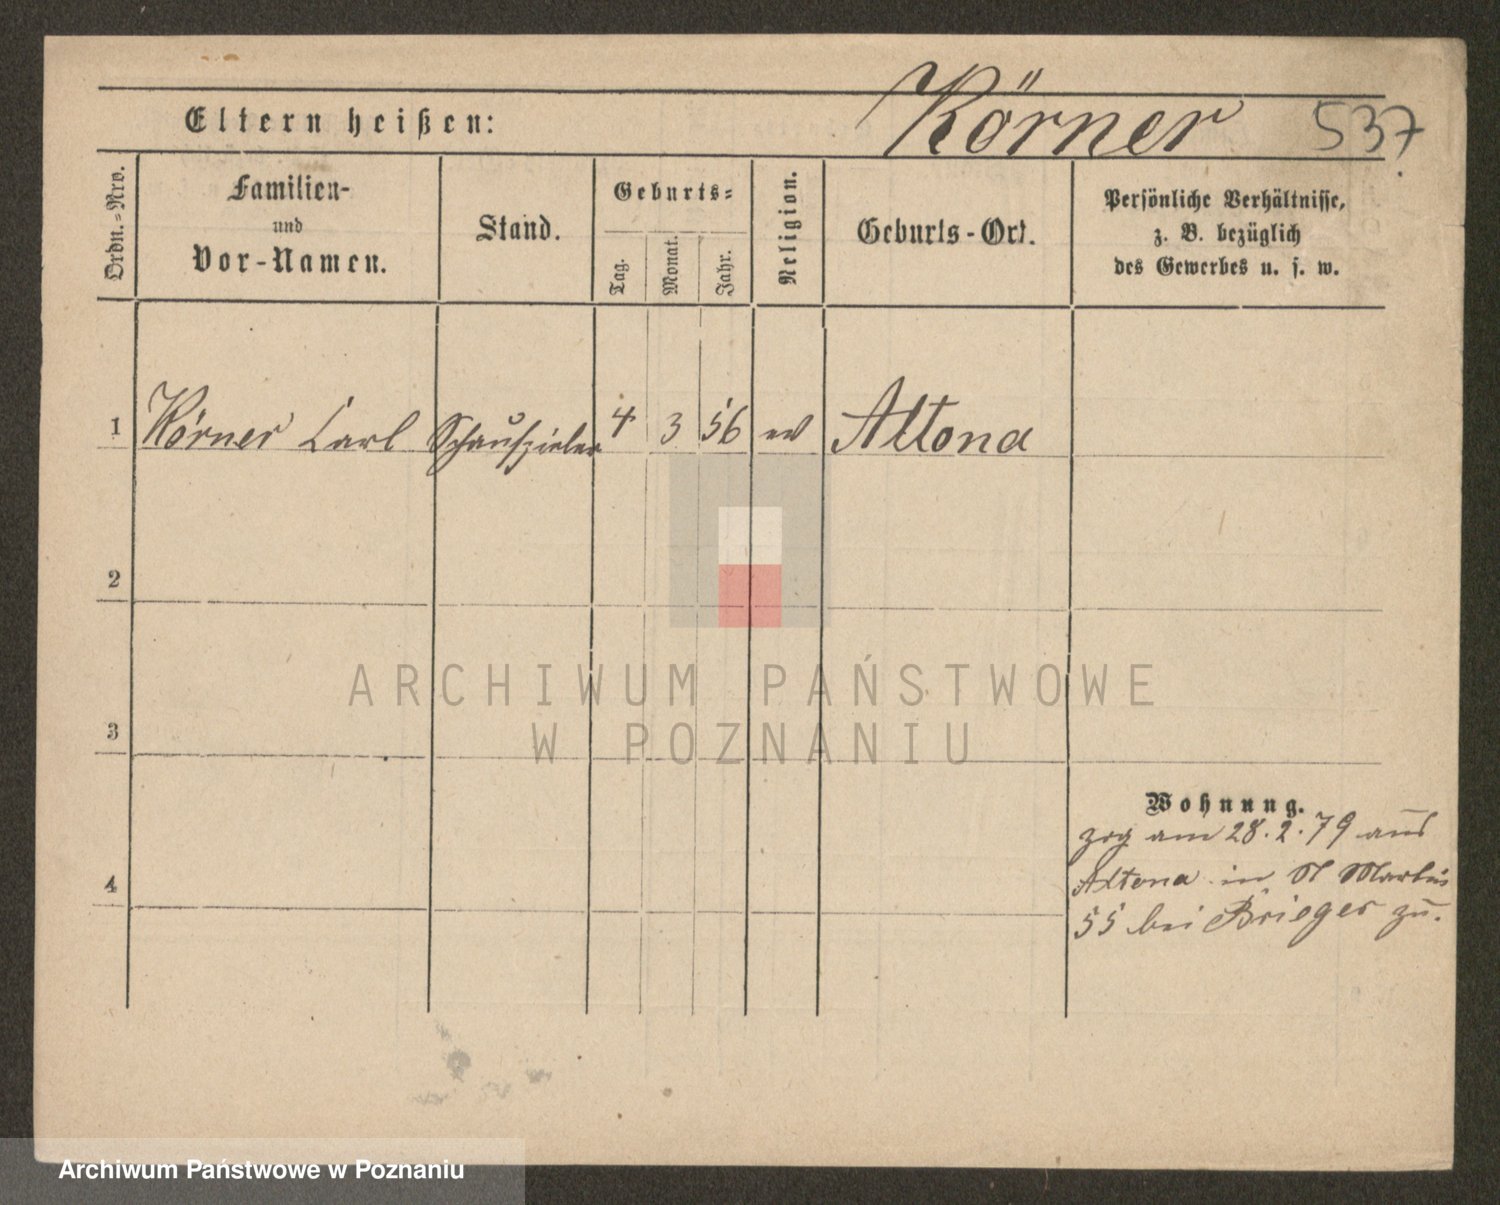 Körner 537
Eltern heißen:
Ordn.-Nro.
Familien-
und
Vor-Namen.
Stand.
Geburts-
Tag.
Monat.
Jahr.
Religion.
Geburts-Ort.
Persönliche Verhältnisse,
z. B. bezüglich
des Gewerbes u. s. w.
1 Körner Carl Schauspieler 4 3 56 ev Altona
2
3
4
Wohnung.
zog am 28.2.79 aus
Altona in St Martin
55 bei Brieger zu.
ARCHIWUM PAŃSTWOWE
W POZNANIU
Archiwum Państwowe w Poznaniu